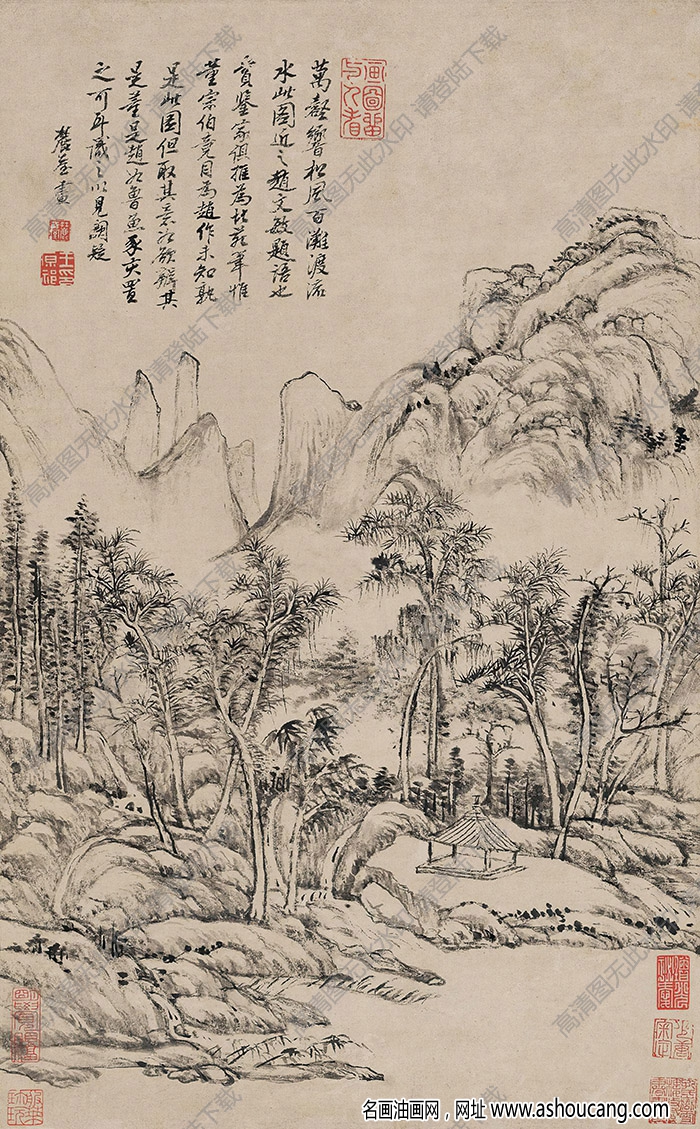 萬壑響松風百灘渡流
水此圖近之趙文敏題語也
賞鑒家俱推為北苑筆惟
董宗伯竟目為趙作未知孰
是此圖但取其意如欲辨其
是董是趙如魯魚豕亥置
之可耳識之以見闕疑
麓臺畫
高清图无此水印 请登陆下载
名画油画网，网址 www.ashoucang.com